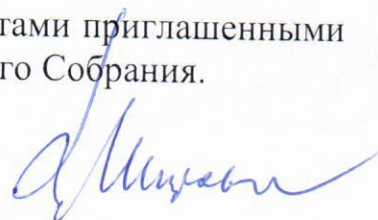 тами приглашенными
го Собрания.